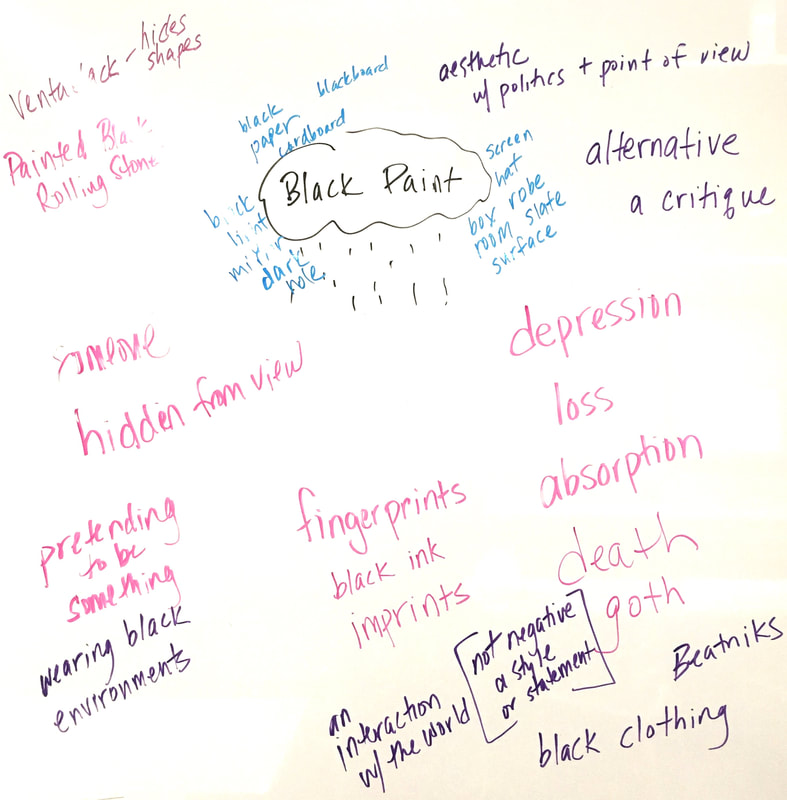 hides
shapes
blackboard
black
paper
cardboard
aesthetic
w/ politics + point of view
Rolling Stone
Black Paint
screen
hat
box robe
room slate
surface
alternative
a critique
dark
hole
depression
hidden from view
loss
absorption
fingerprints
black ink
imprints
pretending
to be
something
death
goth
wearing black
environments
not negative
a style
or statement
Beatniks
an
interaction
w/ the world
black clothing